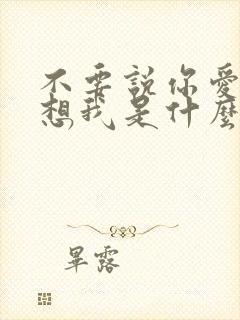 不要說你愛
想我是什麼
畢露